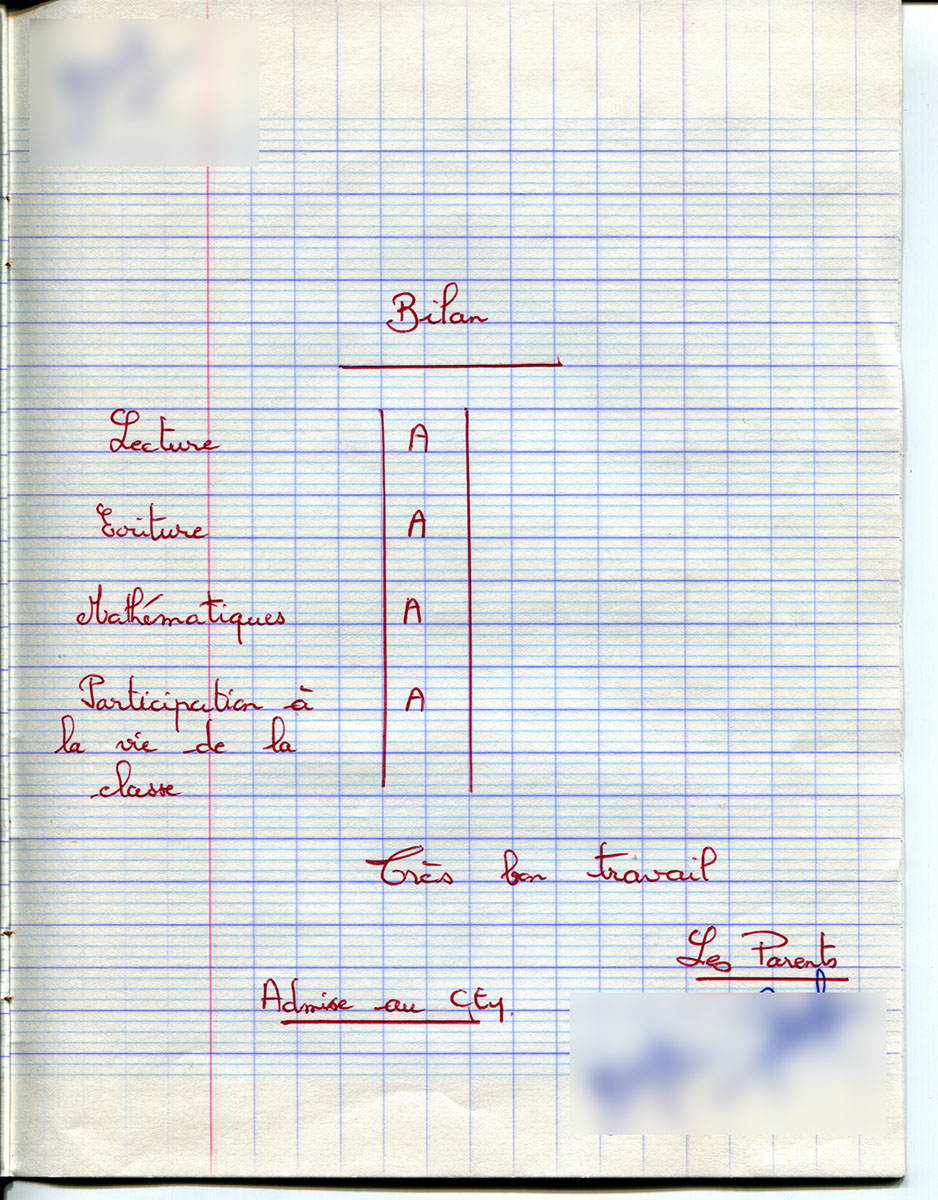 Bilan
Lecture A
Ecriture A
Mathématiques A
Participation à A
la vie de la
classe
Très bon travail
Les Parents
Admise au CE1.